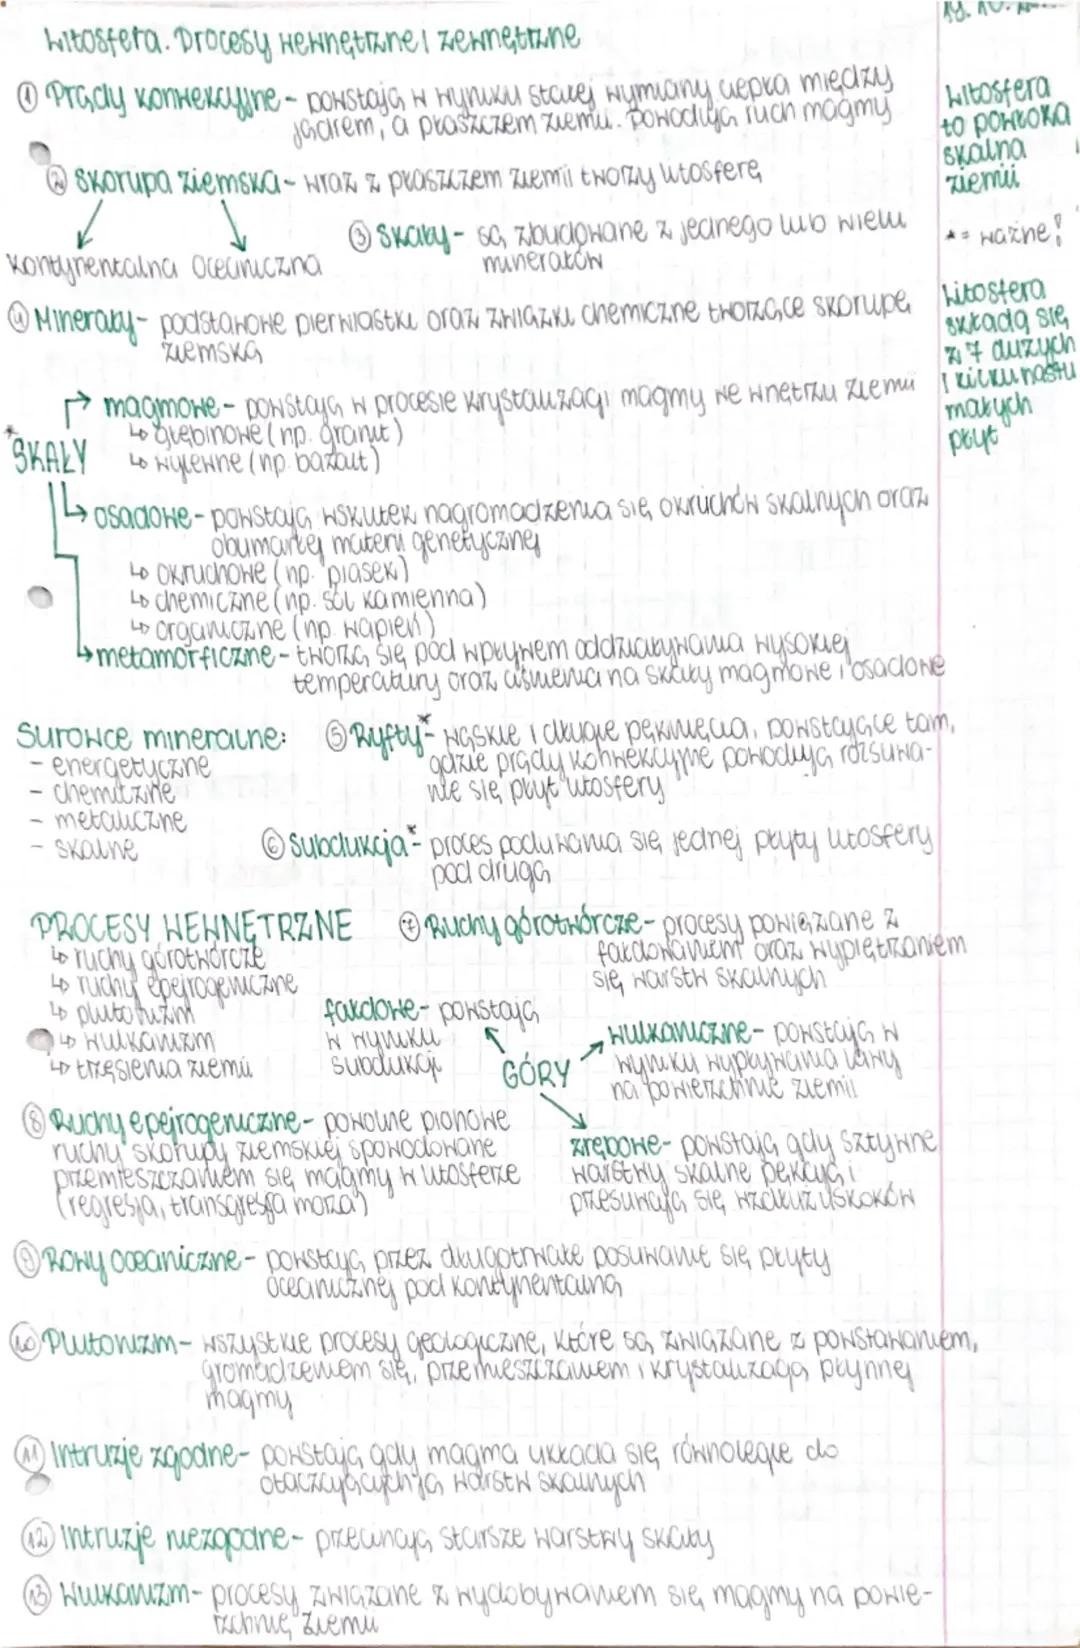 Litosfera. Procesy wewnętrzne i zewnętrzne
① Prądy konwekcyjne - powstają w wyniku stałej wymiany ciepła między
jądrem, a płaszczem ziemii. Powodują ruch magmy
② Skorupa ziemska - wraz z płaszczem ziemii tworzy litosferę
kontynentalna oceaniczna
③ Skały - są zbudowane z jednego lub wielu
minerałów
④ Minerały - podstawowe pierwiastki oraz związki chemiczne tworzące skorupę
ziemską
* SKAŁY
→ magmowe - powstają w procesie krystalizacji magmy we wnętrzu ziemii
↳ głębinowe (np. granit)
↳ wylewne (np. bazalt)
↳ osadowe - powstają wskutek nagromadzenia się okruchów skalnych oraz
obumarłej materii genetycznej
↳ okruchowe (np. piasek)
↳ chemiczne (np. sól kamienna)
↳ organiczne (np. wapień)
↳ metamorficzne - tworzą się pod wpływem oddziaływania wysokiej
temperatury oraz ciśnienia na skały magmowe i osadowe
Surowce mineralne:
- energetyczne
- chemiczne
- metaliczne
- skalne
⑤ Ryfty* - wąskie i długie pęknięcia, powstające tam,
gdzie prądy konwekcyjne powodują rozsuwa-
nie się płyt litosfery
⑥ Subdukcja* - proces podsuwania się jednej płyty litosfery
pod drugą
PROCESY WEWNĘTRZNE
↳ ruchy górotwórcze
↳ ruchy epejrogeniczne
↳ plutonizm
↳ wulkanizm
↳ trzęsienia ziemii
⑦ Ruchy górotwórcze - procesy powiązane z
fałdowaniem oraz wypiętrzaniem
się warstw skalnych
GÓRY
fałdowe - powstają
w wyniku
subdukcji
wulkaniczne - powstają w
wyniku wypływania lawy
na powierzchnie ziemii
zrębowe - powstają gdy sztywne
warstwy skalne pękają i
przesuwają się wzdłuż uskoków
⑧ Ruchy epejrogeniczne - powolne pionowe
ruchy skorupy ziemskiej spowodowane
przemieszczaniem się magmy w litosferze
(regresja, transgresja morza)
⑨ Rowy oceaniczne - powstają przez długotrwałe posuwanie się płyty
oceanicznej pod kontynentalną
⑩ Plutonizm - wszystkie procesy geologiczne, które są związane z powstawaniem,
gromadzeniem się, przemieszczaniem i krystalizacją płynnej
magmy
⑪ Intruzje zgodne - powstają gdy magma układa się równolegle do
otaczających ją warstw skalnych
⑫ Intruzje niezgodne - przecinają starsze warstwy skały
⑬ Wulkanizm - procesy związane z wydobywaniem się magmy na powie-
rzchnię ziemii
Litosfera
to powłoka
skalna
ziemii
* = ważne!
Litosfera
składa się
z 7 dużych
i kilkunastu
małych
płyt